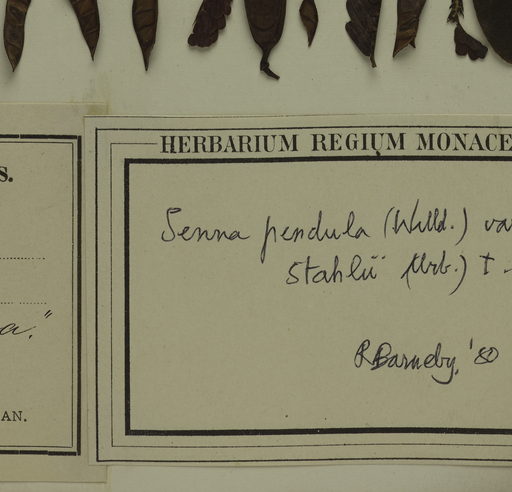 S.
a."
AN.
HERBARIUM REGIUM MONACE
Senna pendula (Willd.) va
Stahlii (Urb.) I
RBarneby, '80